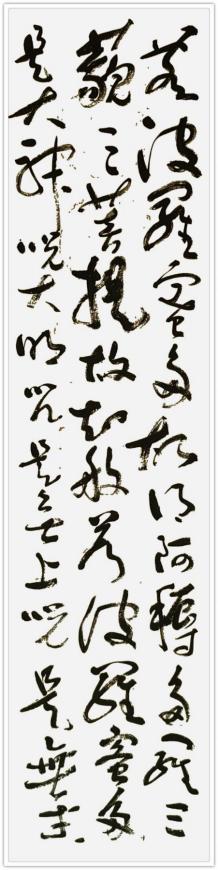 若波羅蜜多故得阿耨多羅三
藐三菩提故知般若波羅蜜多
是大神呪大明呪是无上呪是無等